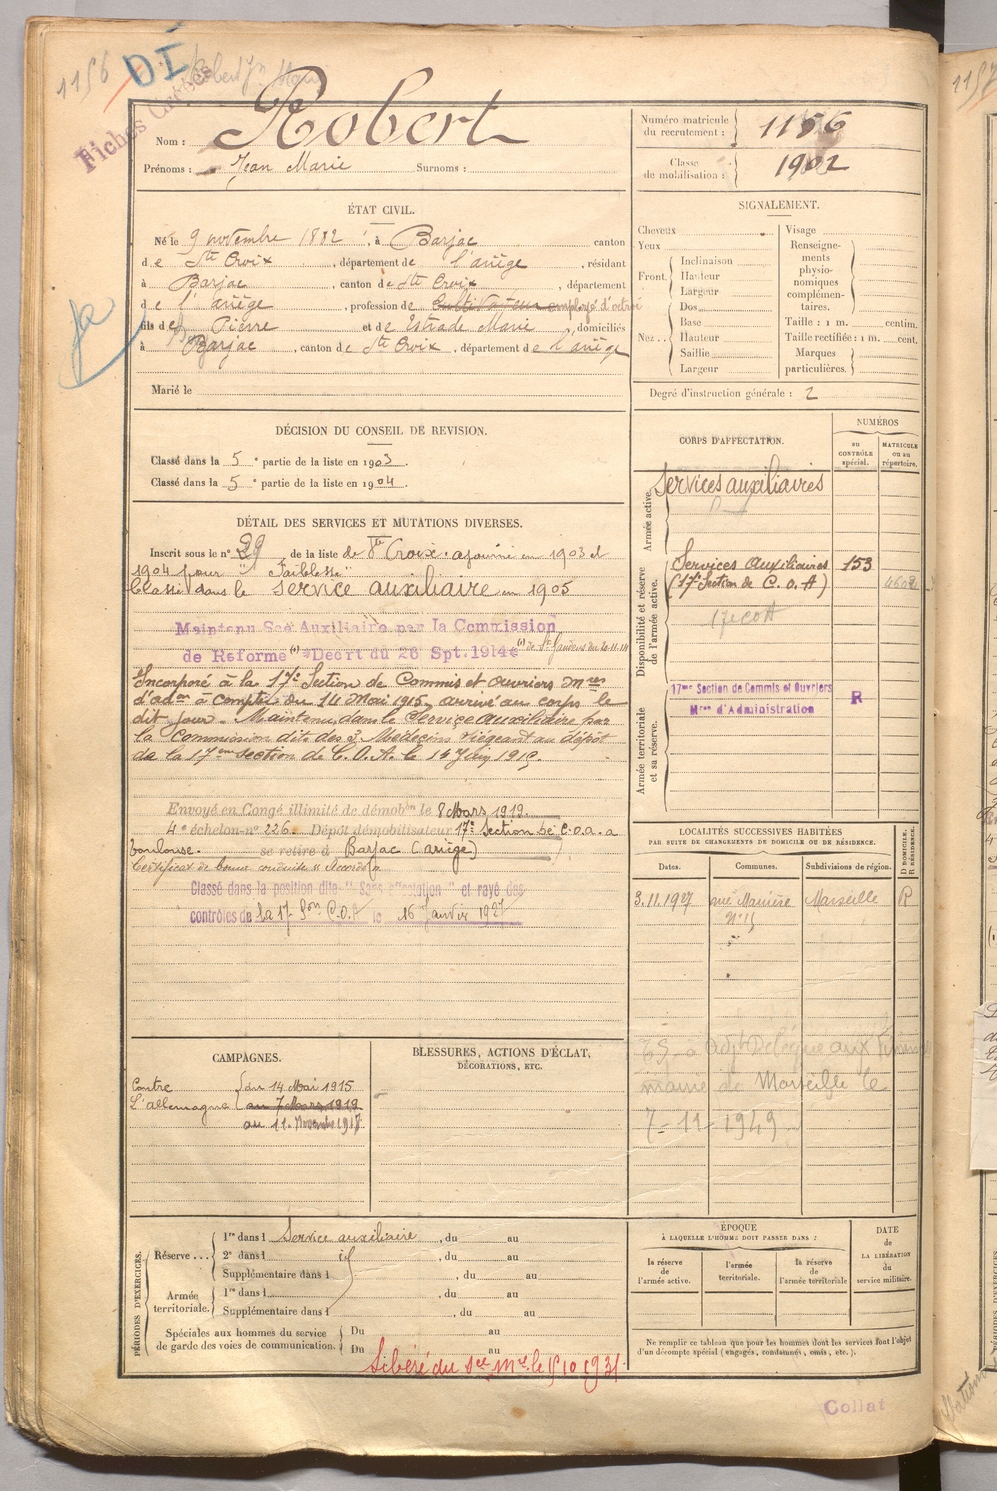 1156 DI
Fiches Croisées
Nom : Robert
Prénoms : Jean Marie Surnoms :
Numéro matricule du recrutement : 1156
Classe de mobilisation : 1902
ÉTAT CIVIL.
Né le 9 novembre 1882, à Barjac canton
de Ste Croix, département de l'ariège, résidant
à Barjac, canton de Ste Croix, département
de l'ariège, profession de Cultivateur employé d'octroi
fils de Pierre et de Estrade Marie, domiciliés
à Barjac, canton de Ste Croix, département de l'ariège
Marié le
SIGNALEMENT.
Cheveux
Yeux
Front.
Inclinaison
Hauteur
Largeur
Nez..
Dos
Base
Hauteur
Saillie
Largeur
Visage
Renseignements physionomiques complémentaires.
Taille : 1 m. centim.
Taille rectifiée : 1 m. cent.
Marques particulières.
Degré d'instruction générale : 2
DÉCISION DU CONSEIL DE REVISION.
Classé dans la 5e partie de la liste en 1903.
Classé dans la 5e partie de la liste en 1904.
DÉTAIL DES SERVICES ET MUTATIONS DIVERSES.
Inscrit sous le n° 29 de la liste de Ste Croix. ajourné en 1903 et
1904 pour "Faiblesse"
Classé dans le service auxiliaire en 1905
Maintenu Sce Auxiliaire par la Commission
de Reforme (1) Décrt du 26 Spt. 1914 (1) de St Gaudens du
Incorporé à la 17e Section de Commis et ouvriers mres
d'adon à compter du 14 Mai 1915, arrivé au corps le
dit jour. Maintenu dans le Service auxiliaire par
la Commission dite des 3 Médecins siégeant au dépôt
de la 17eme Section de C.O.A. le 14 Juin 1915.
Envoyé en Congé illimité de démobon le 8 Mars 1919.
4e échelon-n° 226. Dépôt démobilisateur 17e Section de C.O.A. a
Toulouse. se retire à Barjac (ariège)
Certificat de bonne conduite "Accordé"
Classé dans la position dite "Sans affectation" et rayé des
contrôles de la 17e Son C.O.A le 16 Janvier 1927
CORPS D'AFFECTATION.
NUMÉROS
au CONTRÔLE spécial.
MATRICULE ou au répertoire.
Armée active.
Services auxiliaires
Disponibilité et réserve de l'armée active.
Services Auxiliaires 153
(17e Section de C.O.A)
17e COA
Armée territoriale et sa réserve.
17me Section de Commis et Ouvriers R
Mres d'Administration
LOCALITÉS SUCCESSIVES HABITÉES
PAR SUITE DE CHANGEMENTS DE DOMICILE OU DE RÉSIDENCE.
Dates. Communes. Subdivisions de région. D DOMICILE. R RÉSIDENCE.
3.11.1927 Marseille R
mairie de Marseille le
7-11-1949
CAMPAGNES.
Contre l'allemagne
du 14 Mai 1915
au 7 Mars 1919
au 11. Novembre 1918
BLESSURES, ACTIONS D'ÉCLAT,
DÉCORATIONS, ETC.
PÉRIODES D'EXERCICES.
Réserve...
1re dans l Service auxiliaire, du au
2e dans l id, du au
Supplémentaire dans l, du au
Armée territoriale.
1re dans l, du au
Supplémentaire dans l, du au
Spéciales aux hommes du service de garde des voies de communication.
Du au
Du au
Libéré du sce mre le 15 10 1931
ÉPOQUE
À LAQUELLE L'HOMME DOIT PASSER DANS :
la réserve de l'armée active.
l'armée territoriale.
la réserve de l'armée territoriale
DATE de LA LIBÉRATION du service militaire.
Ne remplir ce tableau que pour les hommes dont les services font l'objet
d'un décompte spécial (engagés, condamnés, omis, etc.).
Collat